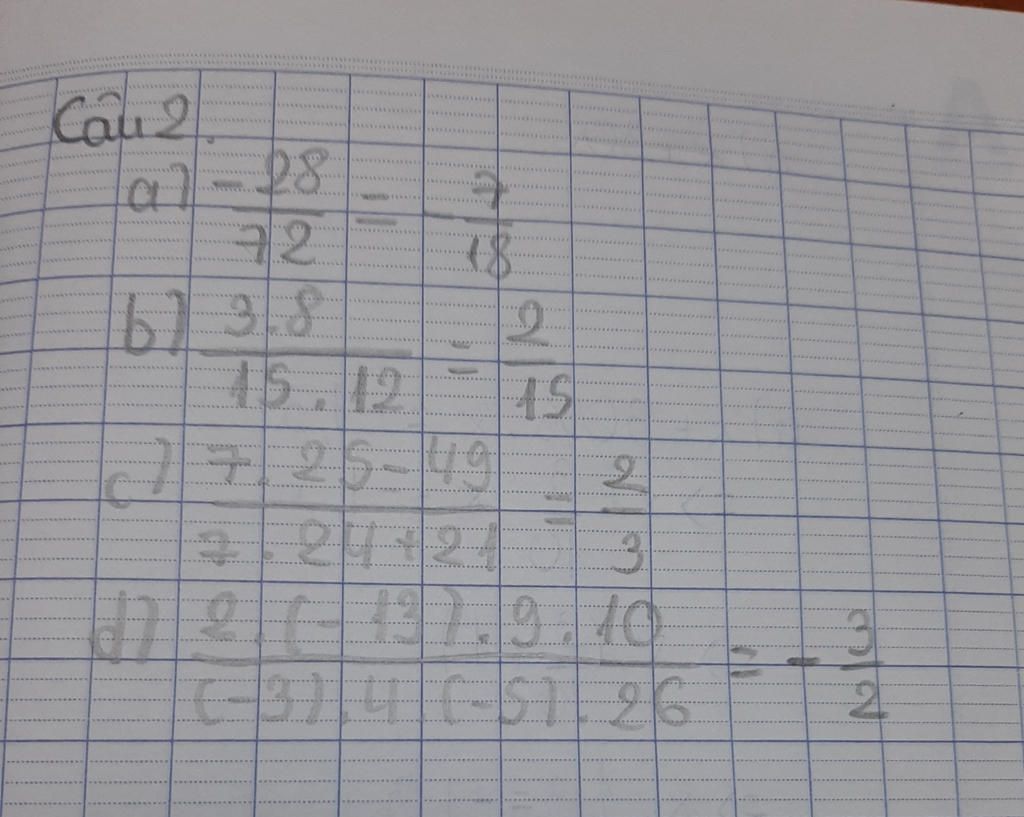 Câu 2.
a) -28/72 = -7/18
b) 3.8/15.12 = 2/15
c) 7.25-49/7.24+21 = 2/3
d) 2.(-13).9.10/(-3).4.(-5).26 = -3/2